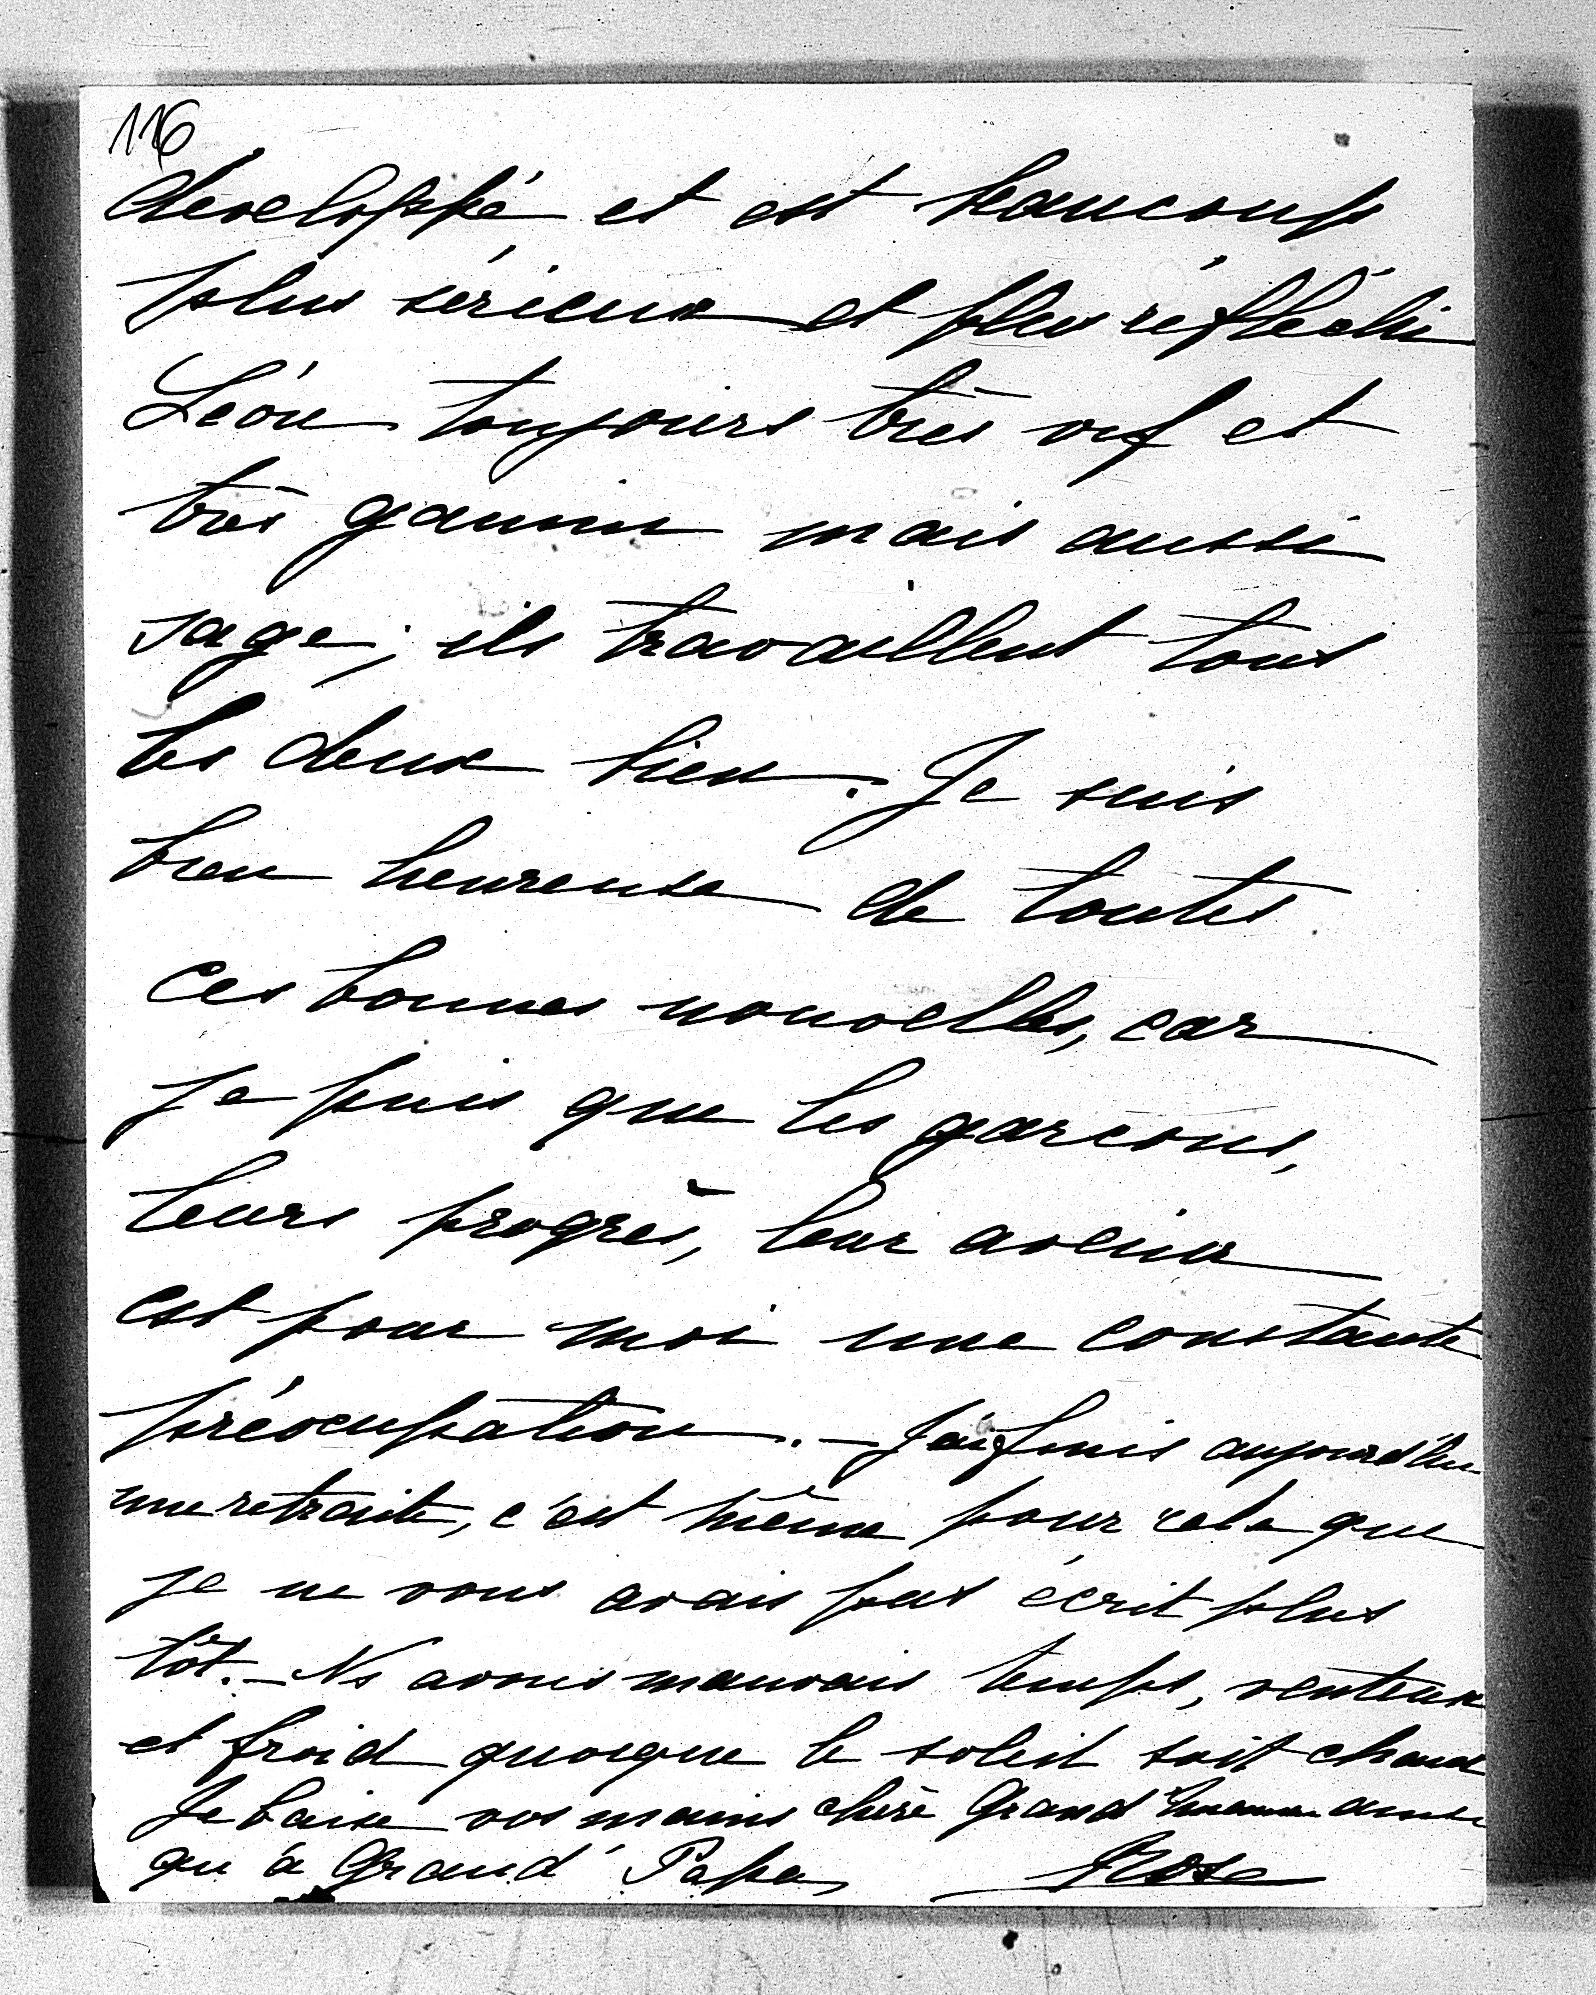 116
developpé et est beaucoup
plus sérieux et plus réfléchi
Léon toujours très vif et
très gamin mais aussi
sage; ils travaillent tous
les deux bien. Je suis
bien heureuse de toutes
ces bonnes nouvelles, car
je puis que les garcons,
leurs progrès, leur avenir
est pour moi une constante
préocupation. - J'ai finis aujourd'hui
une retraite, c'est même pour cela que
je ne vous avais pas écrit plus
tôt. - Ns avons mauvais temps, venteux
et froid quoique le soleil soit chaud
Je baise vos mains chère Grand'maman ainsi
qu'à Grand'Papa, Rose